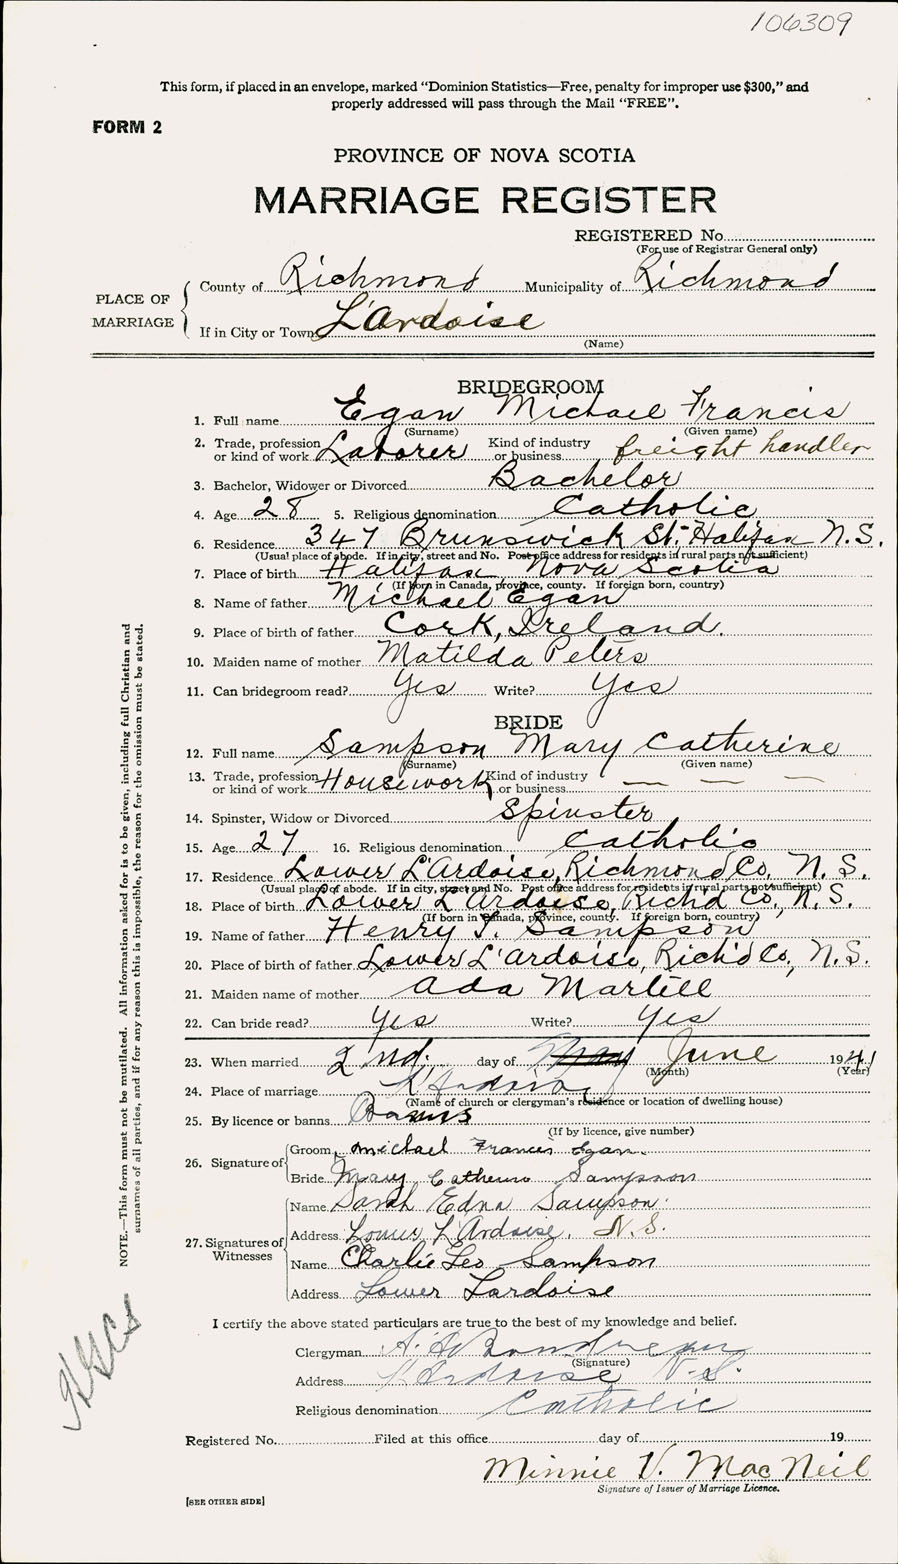 106309
This form, if placed in an envelope, marked “Dominion Statistics—Free, penalty for improper use $300,” and
properly addressed will pass through the Mail “FREE”.
FORM 2
PROVINCE OF NOVA SCOTIA
MARRIAGE REGISTER
REGISTERED No.
(For use of Registrar General only)
PLACE OF MARRIAGE
County of Richmond Municipality of Richmond
If in City or Town L'Ardoise
(Name)
BRIDEGROOM
1. Full name Egan Michael Francis
(Surname) (Given name)
2. Trade, profession or kind of work Laborer Kind of industry or business freight handler
3. Bachelor, Widower or Divorced Bachelor
4. Age 28 5. Religious denomination Catholic
6. Residence 347 Brunswick St. Halifax N.S.
(Usual place of abode. If in city, street and No. Post office address for residents in rural parts not sufficient)
7. Place of birth Halifax Nova Scotia
(If born in Canada, province, county. If foreign born, country)
8. Name of father Michael Egan
9. Place of birth of father Cork, Ireland.
10. Maiden name of mother Matilda Peters
11. Can bridegroom read? Yes Write? Yes
BRIDE
12. Full name Sampson Mary Catherine
(Surname) (Given name)
13. Trade, profession or kind of work Housework Kind of industry or business — — —
14. Spinster, Widow or Divorced Spinster
15. Age 27 16. Religious denomination Catholic
17. Residence Lower L'Ardoise, Richmond Co. N.S.
(Usual place of abode. If in city, street and No. Post office address for residents in rural parts not sufficient)
18. Place of birth Lower L'Ardoise, Rich'd Co., N.S.
(If born in Canada, province, county. If foreign born, country)
19. Name of father Henry T. Sampson
20. Place of birth of father Lower L'Ardoise, Rich'd Co., N.S.
21. Maiden name of mother Ada Martell
22. Can bride read? Yes Write? Yes
23. When married 2nd. day of May June 1941
(Month) (Year)
24. Place of marriage L'Ardoise
(Name of church or clergyman's residence or location of dwelling house)
25. By licence or banns Banns
(If by licence, give number)
26. Signature of
Groom Michael Francis Egan.
Bride Mary Catherine Sampson
27. Signatures of Witnesses
Name Sarah Edna Sampson.
Address Lower L'Ardoise. N.S.
Name Charlie Leo Sampson
Address Lower Lardoise
I certify the above stated particulars are true to the best of my knowledge and belief.
Clergyman
(Signature)
Address L'Ardoise N.S.
Religious denomination Catholic
Registered No. Filed at this office day of 19
Minnie V. MacNeil
Signature of Issuer of Marriage Licence.
[SEE OTHER SIDE]
NOTE.—This form must not be mutilated. All information asked for is to be given, including full Christian and
surnames of all parties, and if for any reason this is impossible, the reason for the omission must be stated.